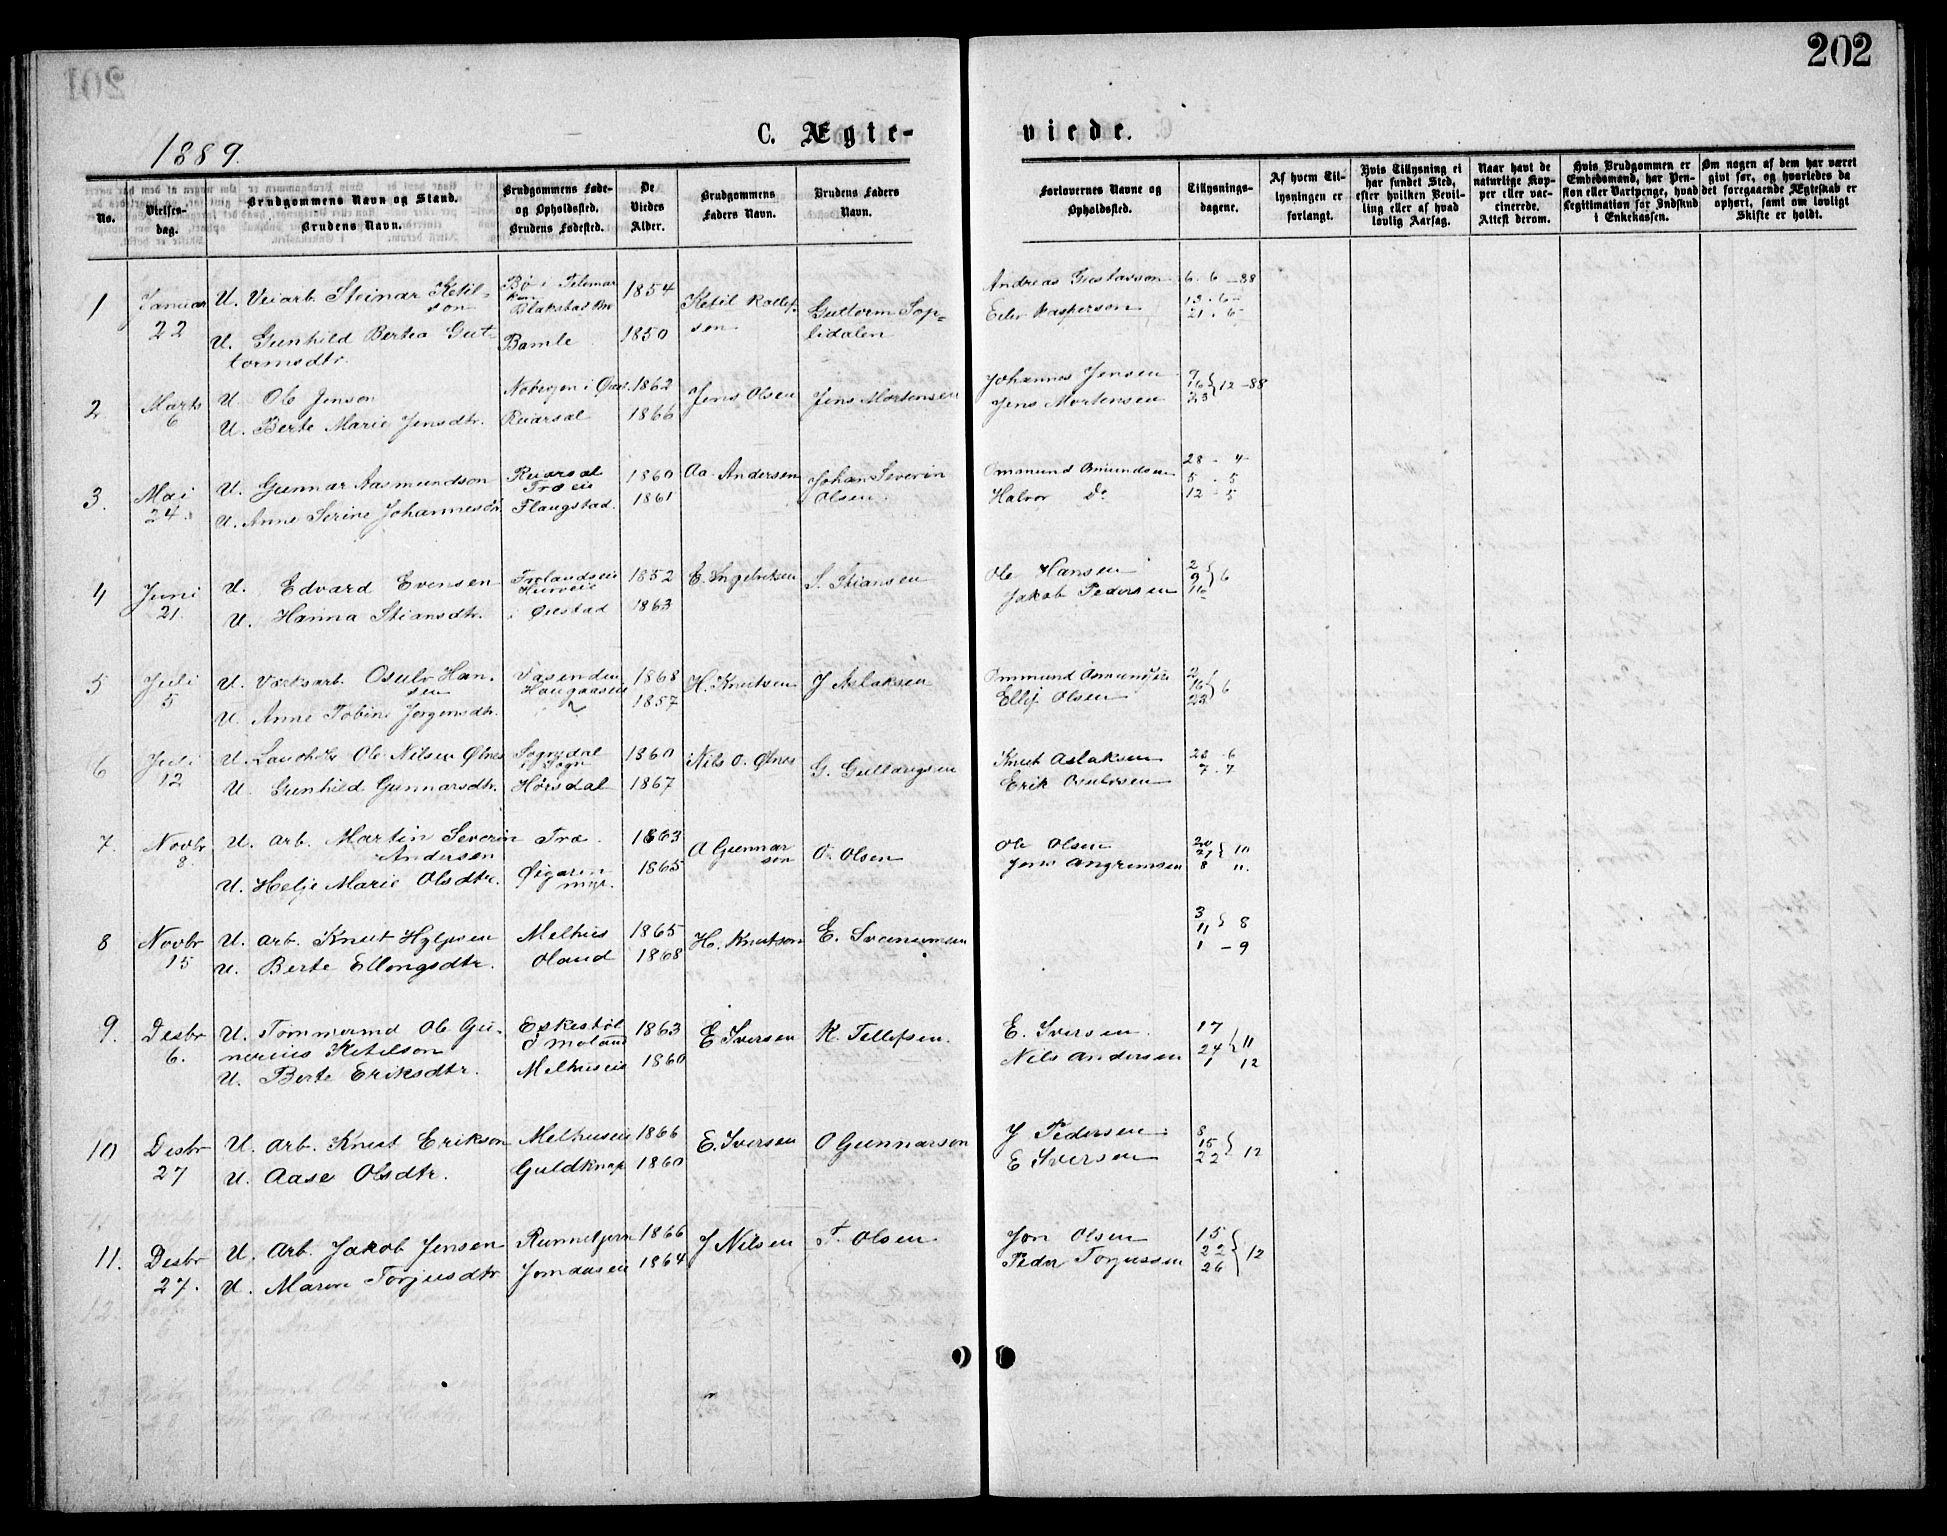 202
1889.
C. Ægte-
viede.
No.
Vielses-
dag.
Brudgommens Navn og Stand.
Brudens Navn.
Brudgommens Føde-
og Opholdssted.
Brudens Fødested.
De
Viedes
Alder.
Brudgommens
Faders Navn.
Brudens Faders
Navn.
Forlovernes Navne og
Opholdssted.
Tillysnings-
dagene.
Af hvem Til-
lysningen er
forlangt.
Hvis Tillysning ei
har fundet Sted,
efter hvilken Bevil-
ling eller af hvad
lovlig Aarsag.
Naar havt de
naturlige Kop-
per eller vac-
cinerede.
Attest derom.
Hvis Brudgommen er
Embedsmand, har Pen-
sion eller Vartpenge, hvad
Legitimation for Indskud
i Enkekassen.
Om nogen af dem har været
gift før, og hvorledes da
det foregaaende Ægteskab er
ophørt, samt om lovligt
Skifte er holdt.
1 Januar 22
U. Veiarb. Steinar Ketil-
son
Bø i Telemar
ken
1854
Ketil
son
Guttorm Sop-
lidalen
Andreas Gustavson
6 - 6 - 88
13 - 6 -
21 - 6
U. Gunhild Bertea Gut-
tormsdtr.
Bamle
1850
2 Marts 6
U. Ole Jenson
1862
Jens Olsen
Jens Mortensen
Johannes Jensen
9
16 } 12 - 88
23
U. Berte Marie Jensdtr.
1866
Jens Mortensen
3. Mai 24.
U. Gunnar Aasmundson
1860
Aa. Andersen
Johan Severin
Olsen.
28 - 4
5 - 5
12 - 5
U. Anne Serine Johannesdtr.
Flaugstad.
1861
Halvor Do
4 Juni 21
U. Edvard Evensen
1852
S. Stiansen
Ole Hansen
2
9 } 6
16
U. Hanna Stiansdtr.
i Øiestad
1863
Jakob Pedersen
5 Juli 5
U. Osulv Han-
sen
1868
H. Knutsen
J Aslaksen
2
16 } 6
23
U. Anne Tobine Jørgensdtr.
1857
Ellef Olsen
6 Juli 12
U. Ole Nilsen Øtnes
Sogndal
i Sogn
1860
Nils O. Øtnes
Knut Aslaksen
23 - 6
7 - 7
U. Gunhild Gunnarsdtr.
Hørsdal
1867
Erik Osulvsen
7. Novbr 8
U. arb. Martin Severin
Andersen
Træ.
1863
A Gunnar
son
O. Olsen
Ole Olsen
20
27 } 10
8 11.
U. Helje Marie Olsdtr.
1865
Jens Angrimsen
8 Novbr 15
U. arb. Knut
Melhus
1865
H. Knutson
3
11 } 8
1 - 9
U. Berte Ellingsdtr.
Oland
1868
9. Desbr 6.
U. Tømmermd Ole Gu-
nerius Ketilson
1863
E Iversen
K. Tellefsen.
E. Iversen
17
24 } 11
1 12
U. Berte Eriksdtr.
Melhuseie
1860
Nils Andersen
10 Desbr 27
U. Arb. Knut Erikson
Melhuseie
1866
E. Iversen
O Gunnarson
J Pedersen
8
15 } 12
22
U. Aase Olsdtr.
Guldknap
1860
E Iversen
11. Desbr 27.
U. Arb. Jakob Jensen
1866
J Nilsen
T. Olsen
Jon Olsen
15
22 } 12
26
U. Maren Torjusdtr
Jomaaseie
1864
Peder Torjussen